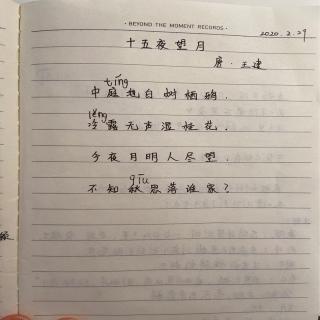 · BEYOND THE MOMENT RECORDS ·
2020.2.29
十五夜望月
唐·王建
tíng
中庭地白树栖鸦,
lěng
冷露无声湿桂花.
今夜月明人尽望,
qiū
不知秋思落谁家?